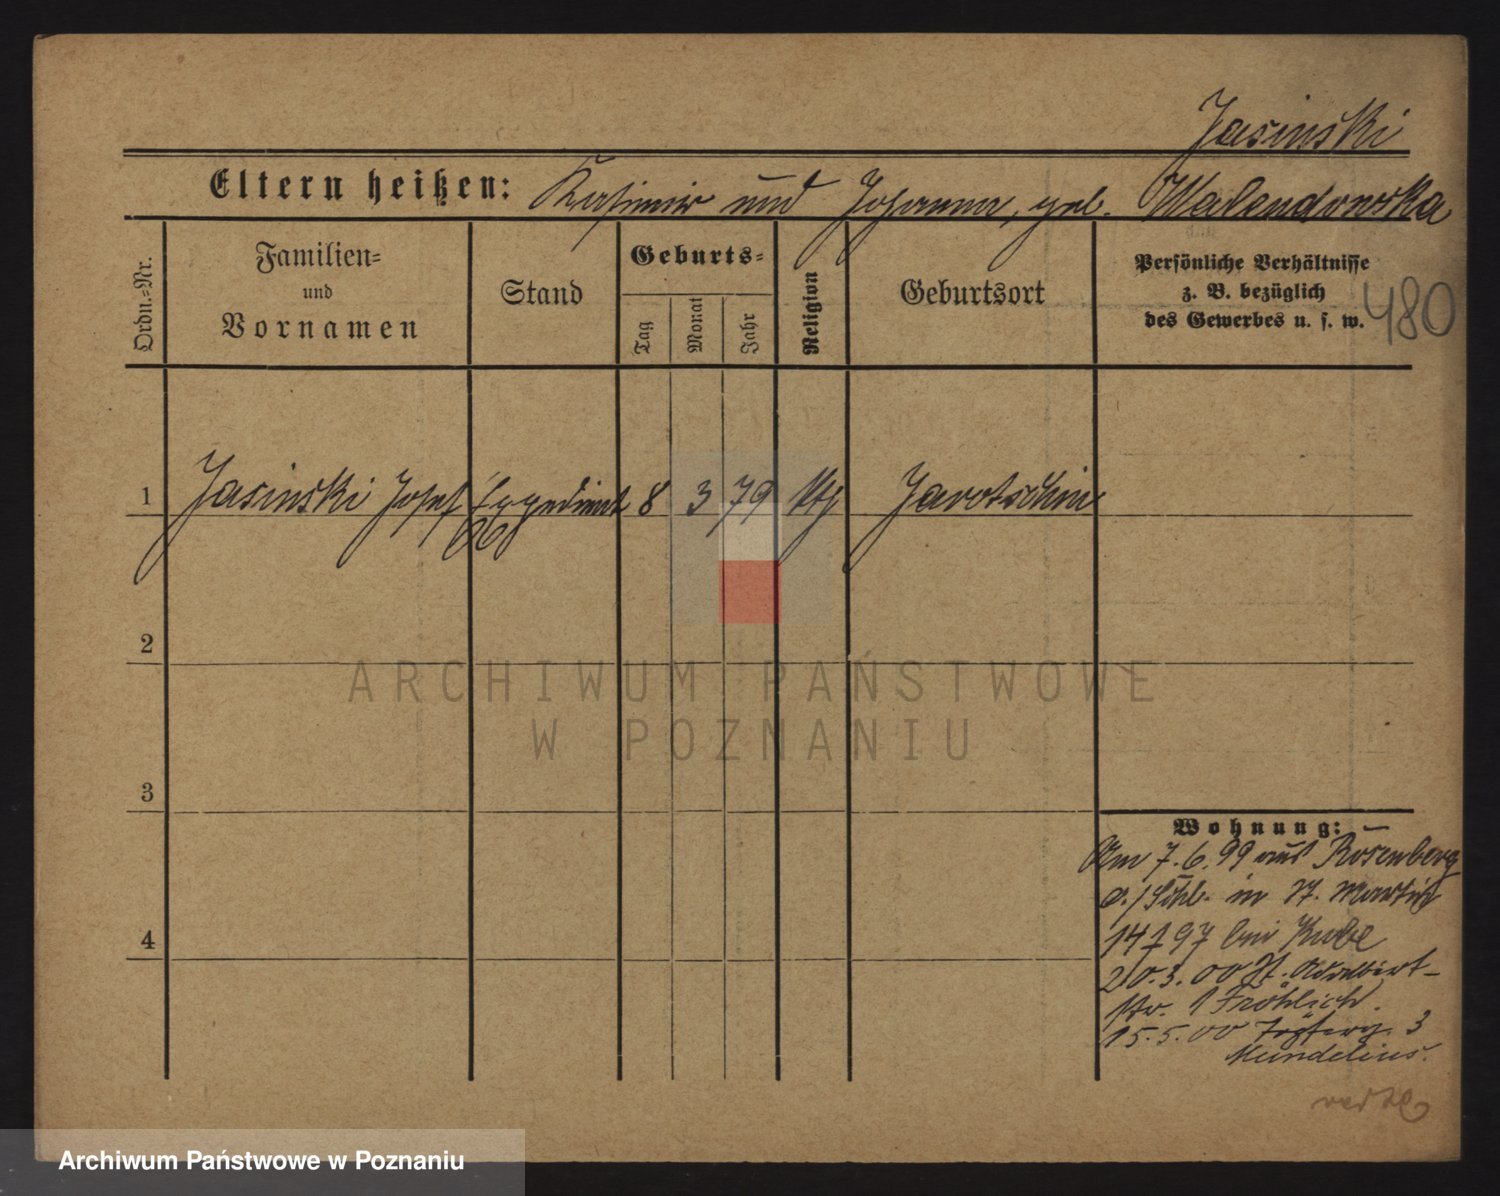 Jasinski
Eltern heißen: Kasimir und Johanna, geb. Malendowska
Ordn.-Nr.
Familien-
und
Vornamen
Stand
Geburts-
Tag
Monat
Jahr
Religion
Geburtsort
Persönliche Verhältnisse
z. B. bezüglich
des Gewerbes u. s. w.
480
1 Jasinski Josef Expedient 8 3 79 kth Jarotschin
2
3
4
Wohnung:
Am 7.6.99 aus Rosenberg
O./Schl. in St. Martin
14 bei Kube
20.3.00 St. Adalbert-
str. 1 Fröhlich.
15.5.00 3
Mundelius.
ARCHIWUM PAŃSTWOWE
W POZNANIU
Archiwum Państwowe w Poznaniu